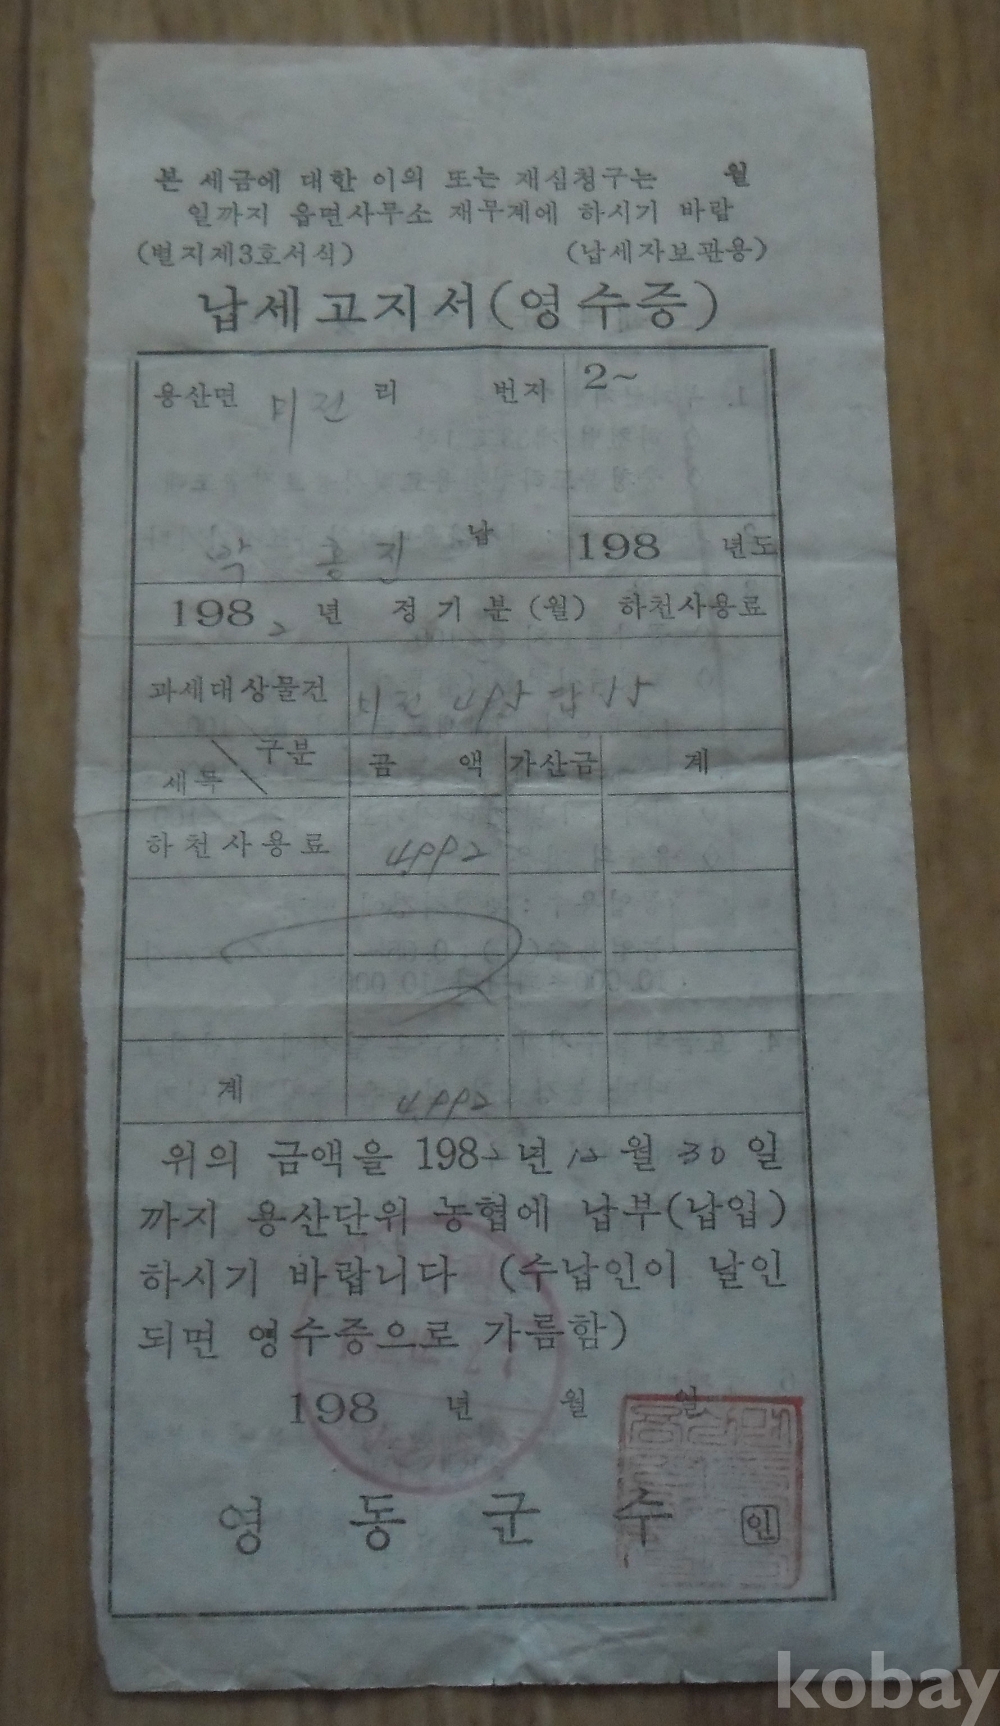 본 세금에 대한 이의 또는 재심청구는 월
일까지 읍면사무소 재무계에 하시기 바람
(별지제3호서식) (납세자보관용)
납세고지서(영수증)
용산면 미전 리 번지 2~
박 종 진 납 198 년도
1982 년 정기분(월) 하천사용료
과세대상물건 미전
구분 금 액 가산금 계
세목
하천사용료 4992
계 4992
위의 금액을 1982년 12월 30일
까지 용산단위 농협에 납부(납입)
하시기 바랍니다 (수납인이 날인
되면 영수증으로 가름함)
198 년 월 일
영 동 군 수 인
kobay